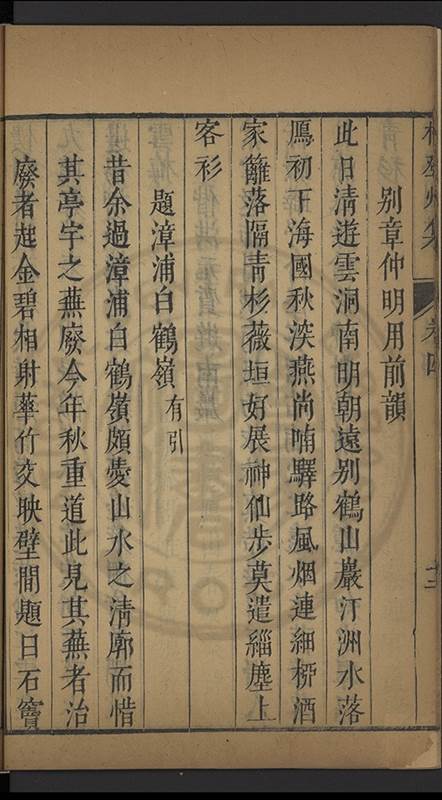 卷四
十三
別章仲明用前韻
此日清遊雲洞南明朝遠別鶴山巖汀洲水落
鴈初下海國秋深燕尚喃驛路風烟連細栁酒
家籬落隔青杉薇垣好展神仙步莫遣緇塵上
客衫
題漳浦白鶴嶺有引
昔余過漳浦白鶴嶺頗愛山水之清廓而惜
其亭宇之蕪廢今年秋重道此見其蕪者治
廢者起金碧相射華竹交映壁間題曰石竇